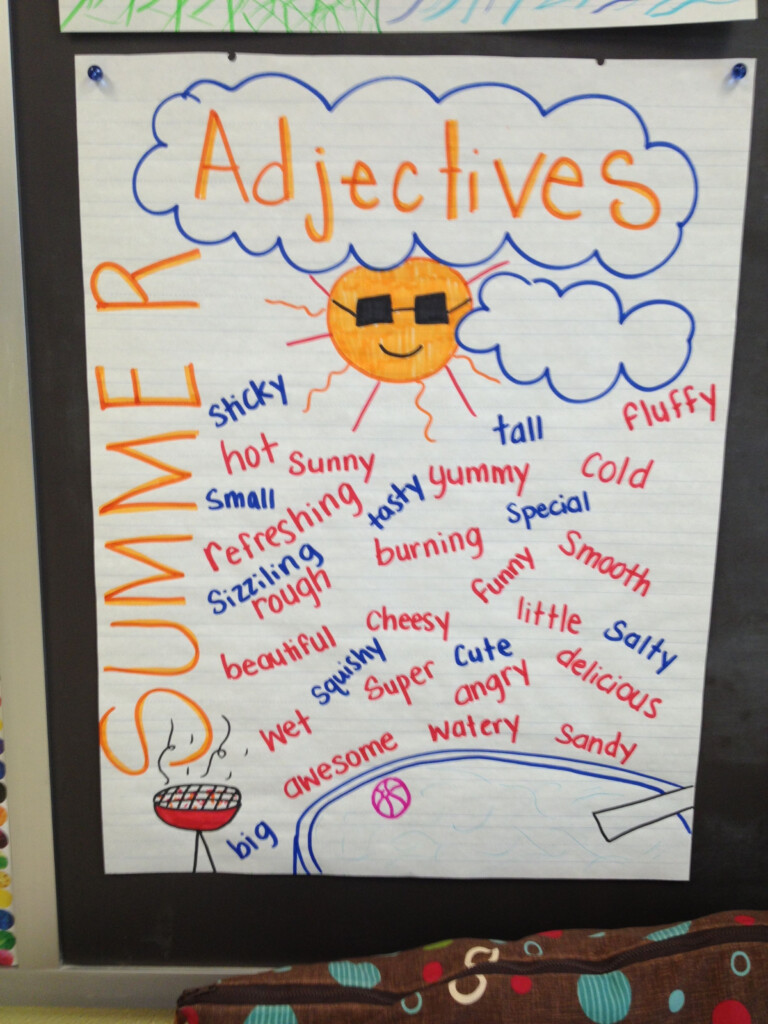 Adjectives
SUMMER
sticky
tall
fluffy
hot
Sunny
yummy
Cold
Small
tasty
Special
refreshing
burning
Smooth
Sizziling
rough
funny
little
Salty
Cheesy
beautiful
squishy
Super
Cute
angry
delicious
wet
watery
Sandy
awesome
big